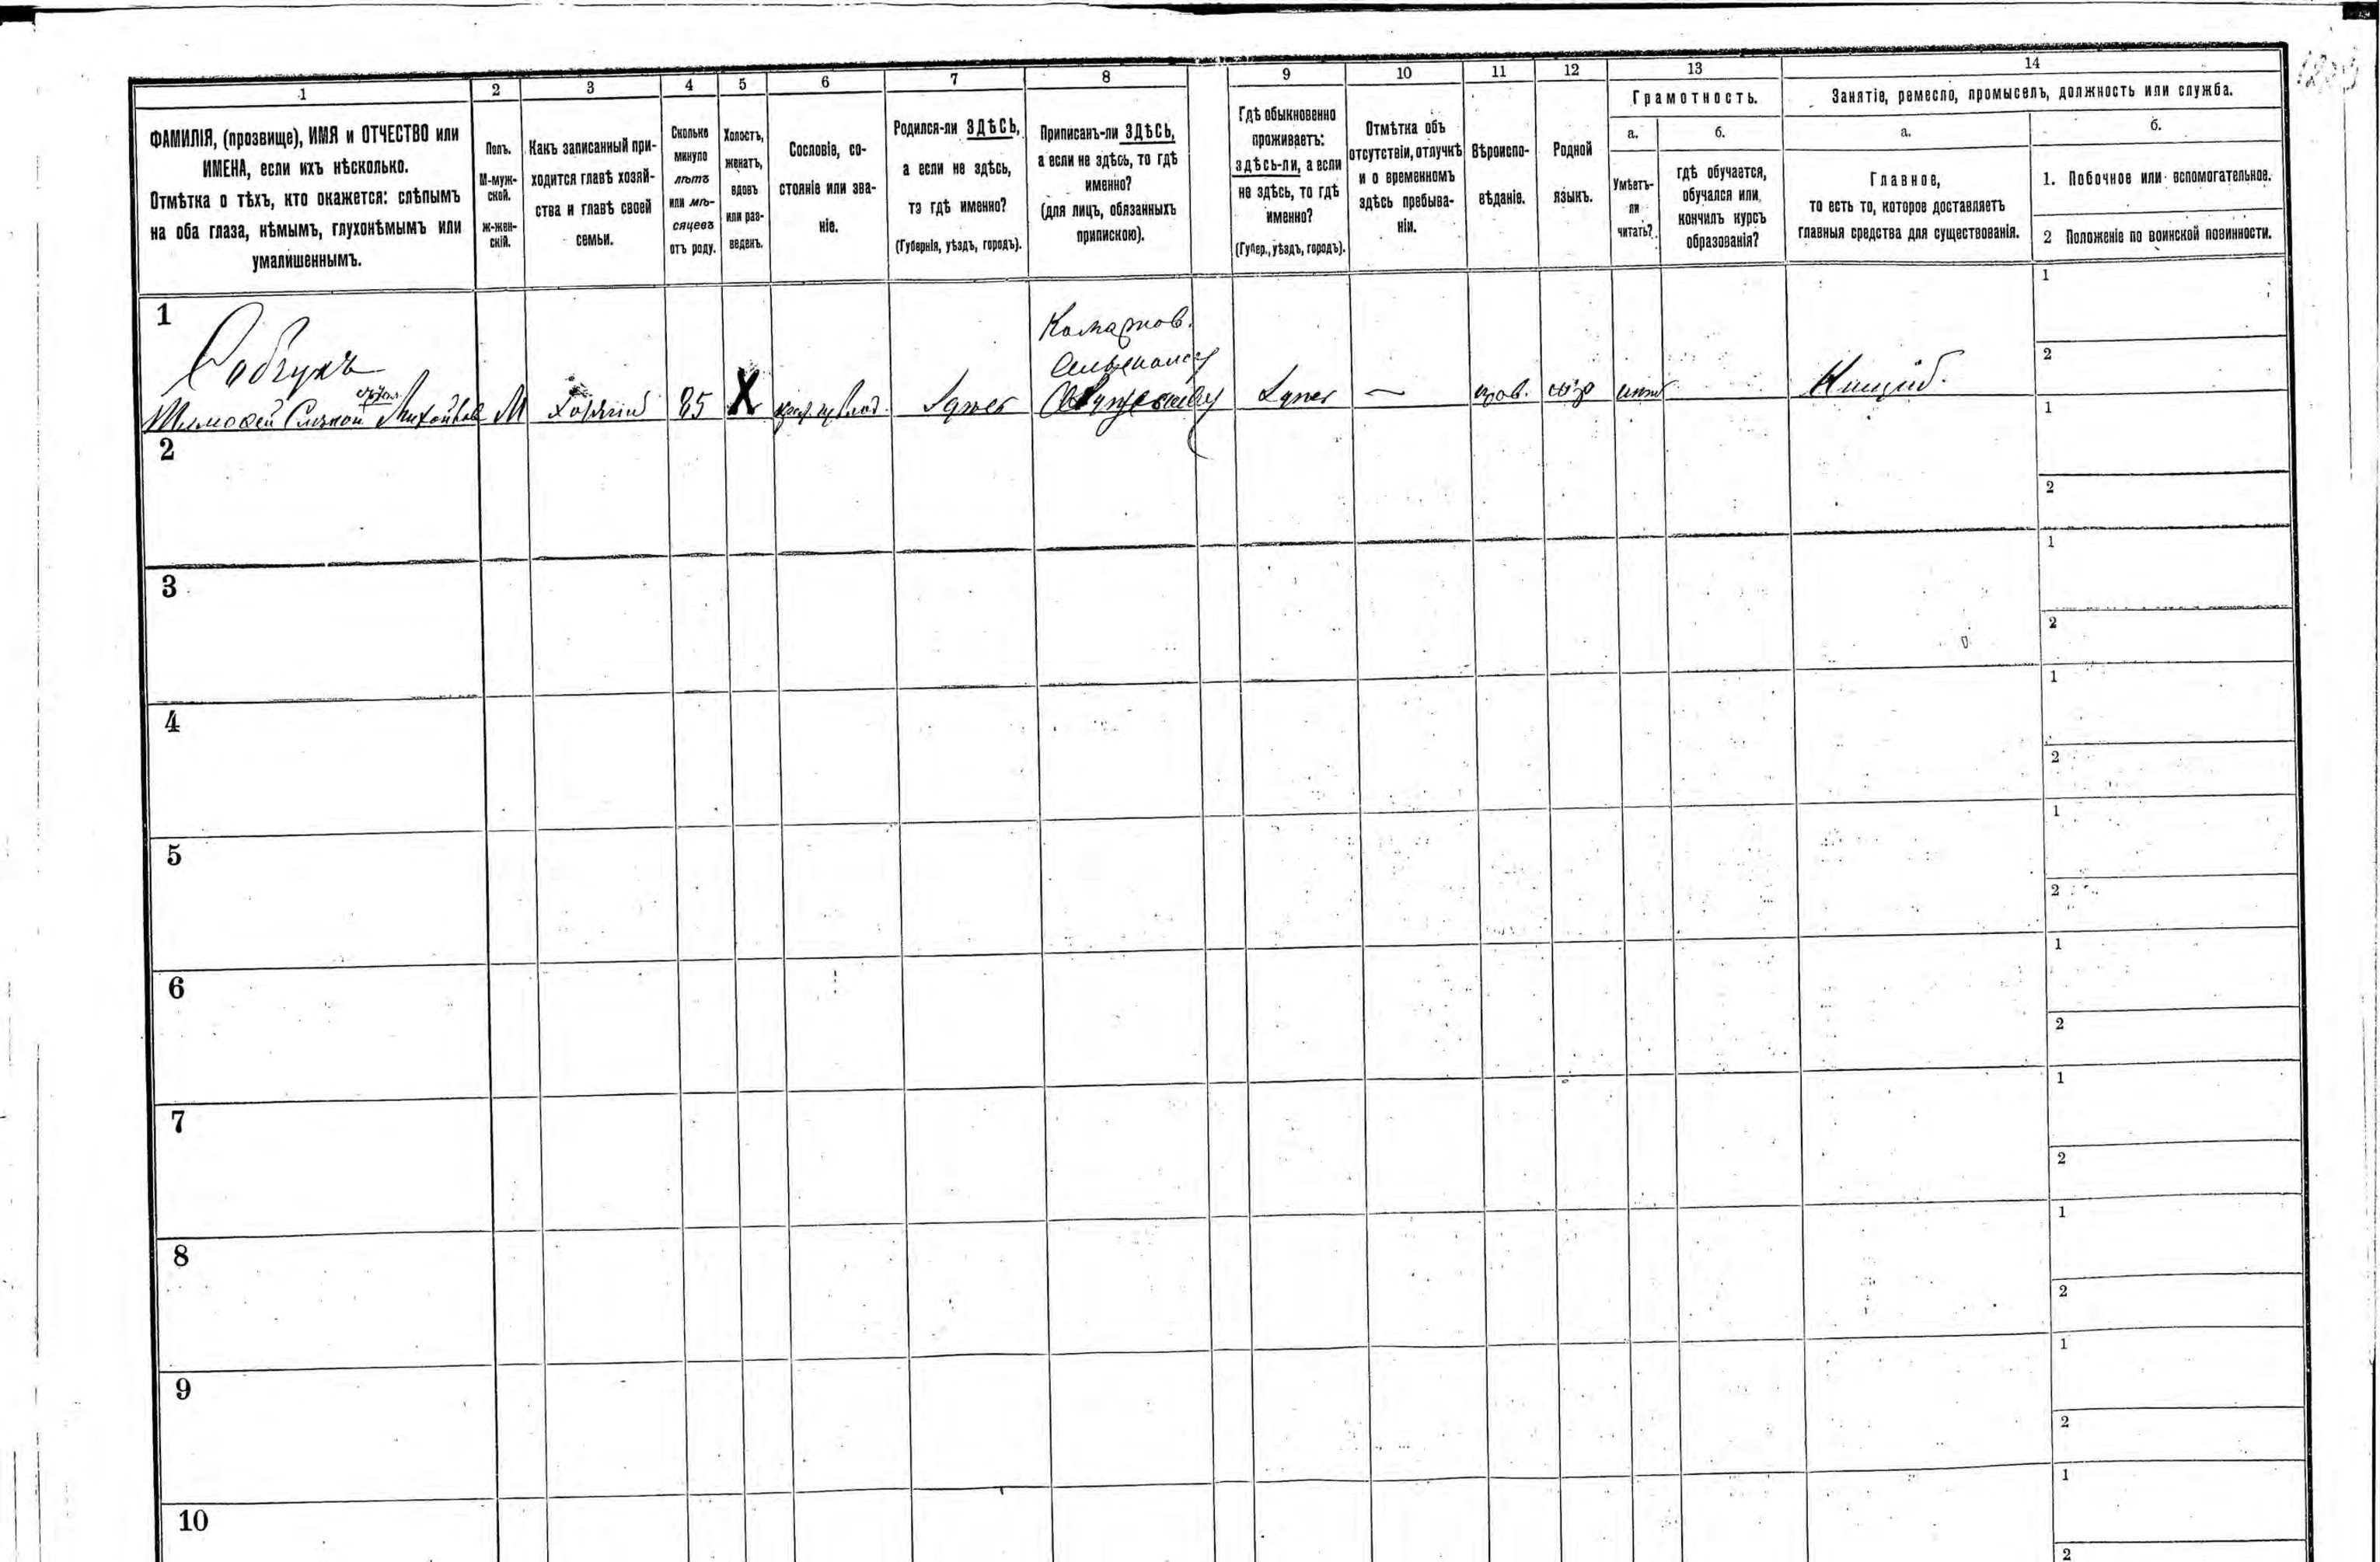 1
2
3
4
5
6
7
8
9
10
11
12
13
14
ФАМИЛІЯ, (прозвище), ИМЯ и ОТЧЕСТВО или
ИМЕНА, если ихъ нѣсколько.
Отмѣтка о тѣхъ, кто окажется: слѣпымъ
на оба глаза, нѣмымъ, глухонѣмымъ или
умалишеннымъ.
Полъ.
М-муж-
ской.
ж-жен-
скій.
Какъ записанный при-
ходится главѣ хозяй-
ства и главѣ своей
семьи.
Сколько
минуло
лѣтъ
или мѣ-
сяцевъ
отъ роду.
Холостъ,
женатъ,
вдовъ
или раз-
веденъ.
Сословіе, со-
стояніе или зва-
ніе.
Родился-ли ЗДѢСЬ,
а если не здѣсь,
то гдѣ именно?
(Губернія, уѣздъ, городъ).
Приписанъ-ли ЗДѢСЬ,
а если не здѣсь, то гдѣ
именно?
(для лицъ, обязанныхъ
припискою).
Гдѣ обыкновенно
проживаетъ:
здѣсь-ли, а если
не здѣсь, то гдѣ
именно?
(Губер., уѣздъ, городъ).
Отмѣтка объ
отсутствіи, отлучкѣ
и о временномъ
здѣсь пребыва-
ніи.
Вѣроиспо-
вѣданіе.
Родной
языкъ.
Грамотность.
а.
Умѣетъ-
ли
читать?
б.
гдѣ обучается,
обучался или
кончилъ курсъ
образованія?
Занятіе, ремесло, промыселъ, должность или служба.
а.
Главное,
то есть то, которое доставляетъ
главныя средства для существованія.
б.
1. Побочное или вспомогательное.
2 Положеніе по воинской повинности.
1
Михайлов М 85 Х прав. нѣт
1
2
2
1
2
3
1
2
4
1
2
5
1
2
6
1
2
7
1
2
8
1
2
9
1
2
10
1
2